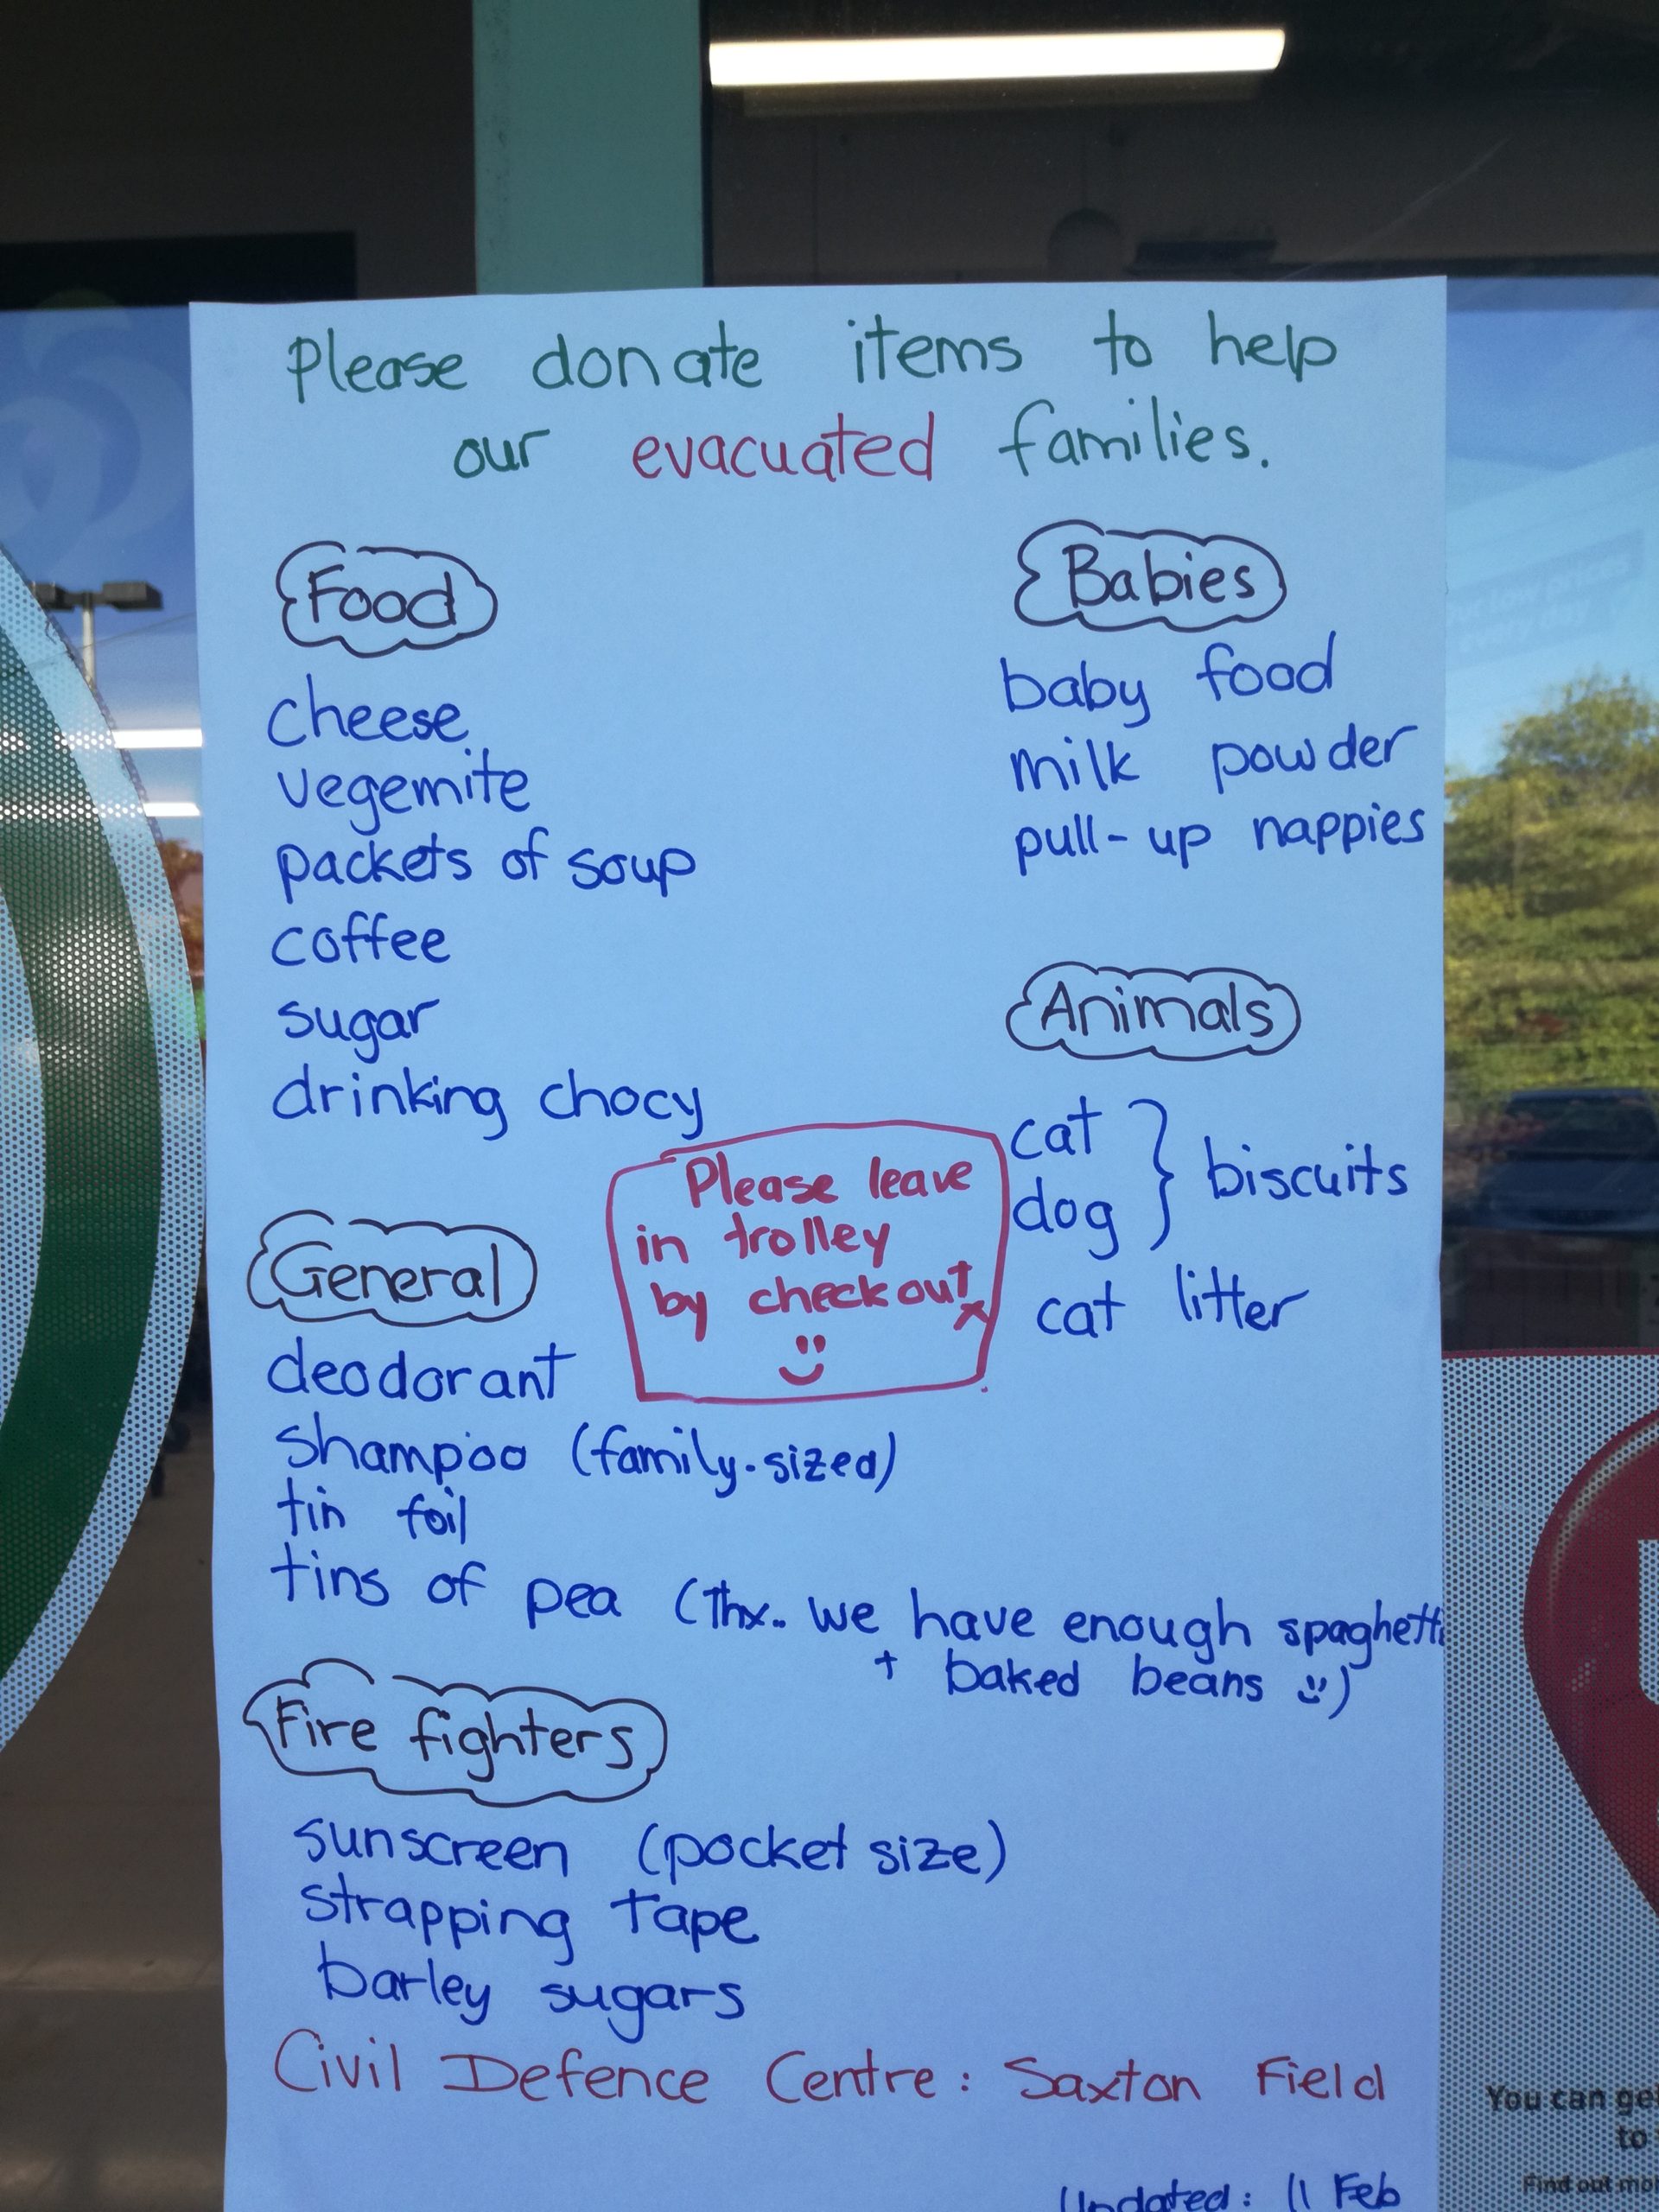 Please donate items to help
our evacuated families.
Food
cheese
vegemite
packets of soup
coffee
sugar
drinking chocy
Babies
baby food
milk powder
pull-up nappies
Animals
cat
dog
biscuits
cat litter
Please leave
in trolley
by checkout
General
deodorant
shampoo (family-sized)
tin foil
tins of pea (Thx.. we have enough spaghetti
+ baked beans)
Fire fighters
sunscreen (pocket size)
strapping tape
barley sugars
Civil Defence Centre: Saxton Field
Updated: 11 Feb
You can get
to
Find out